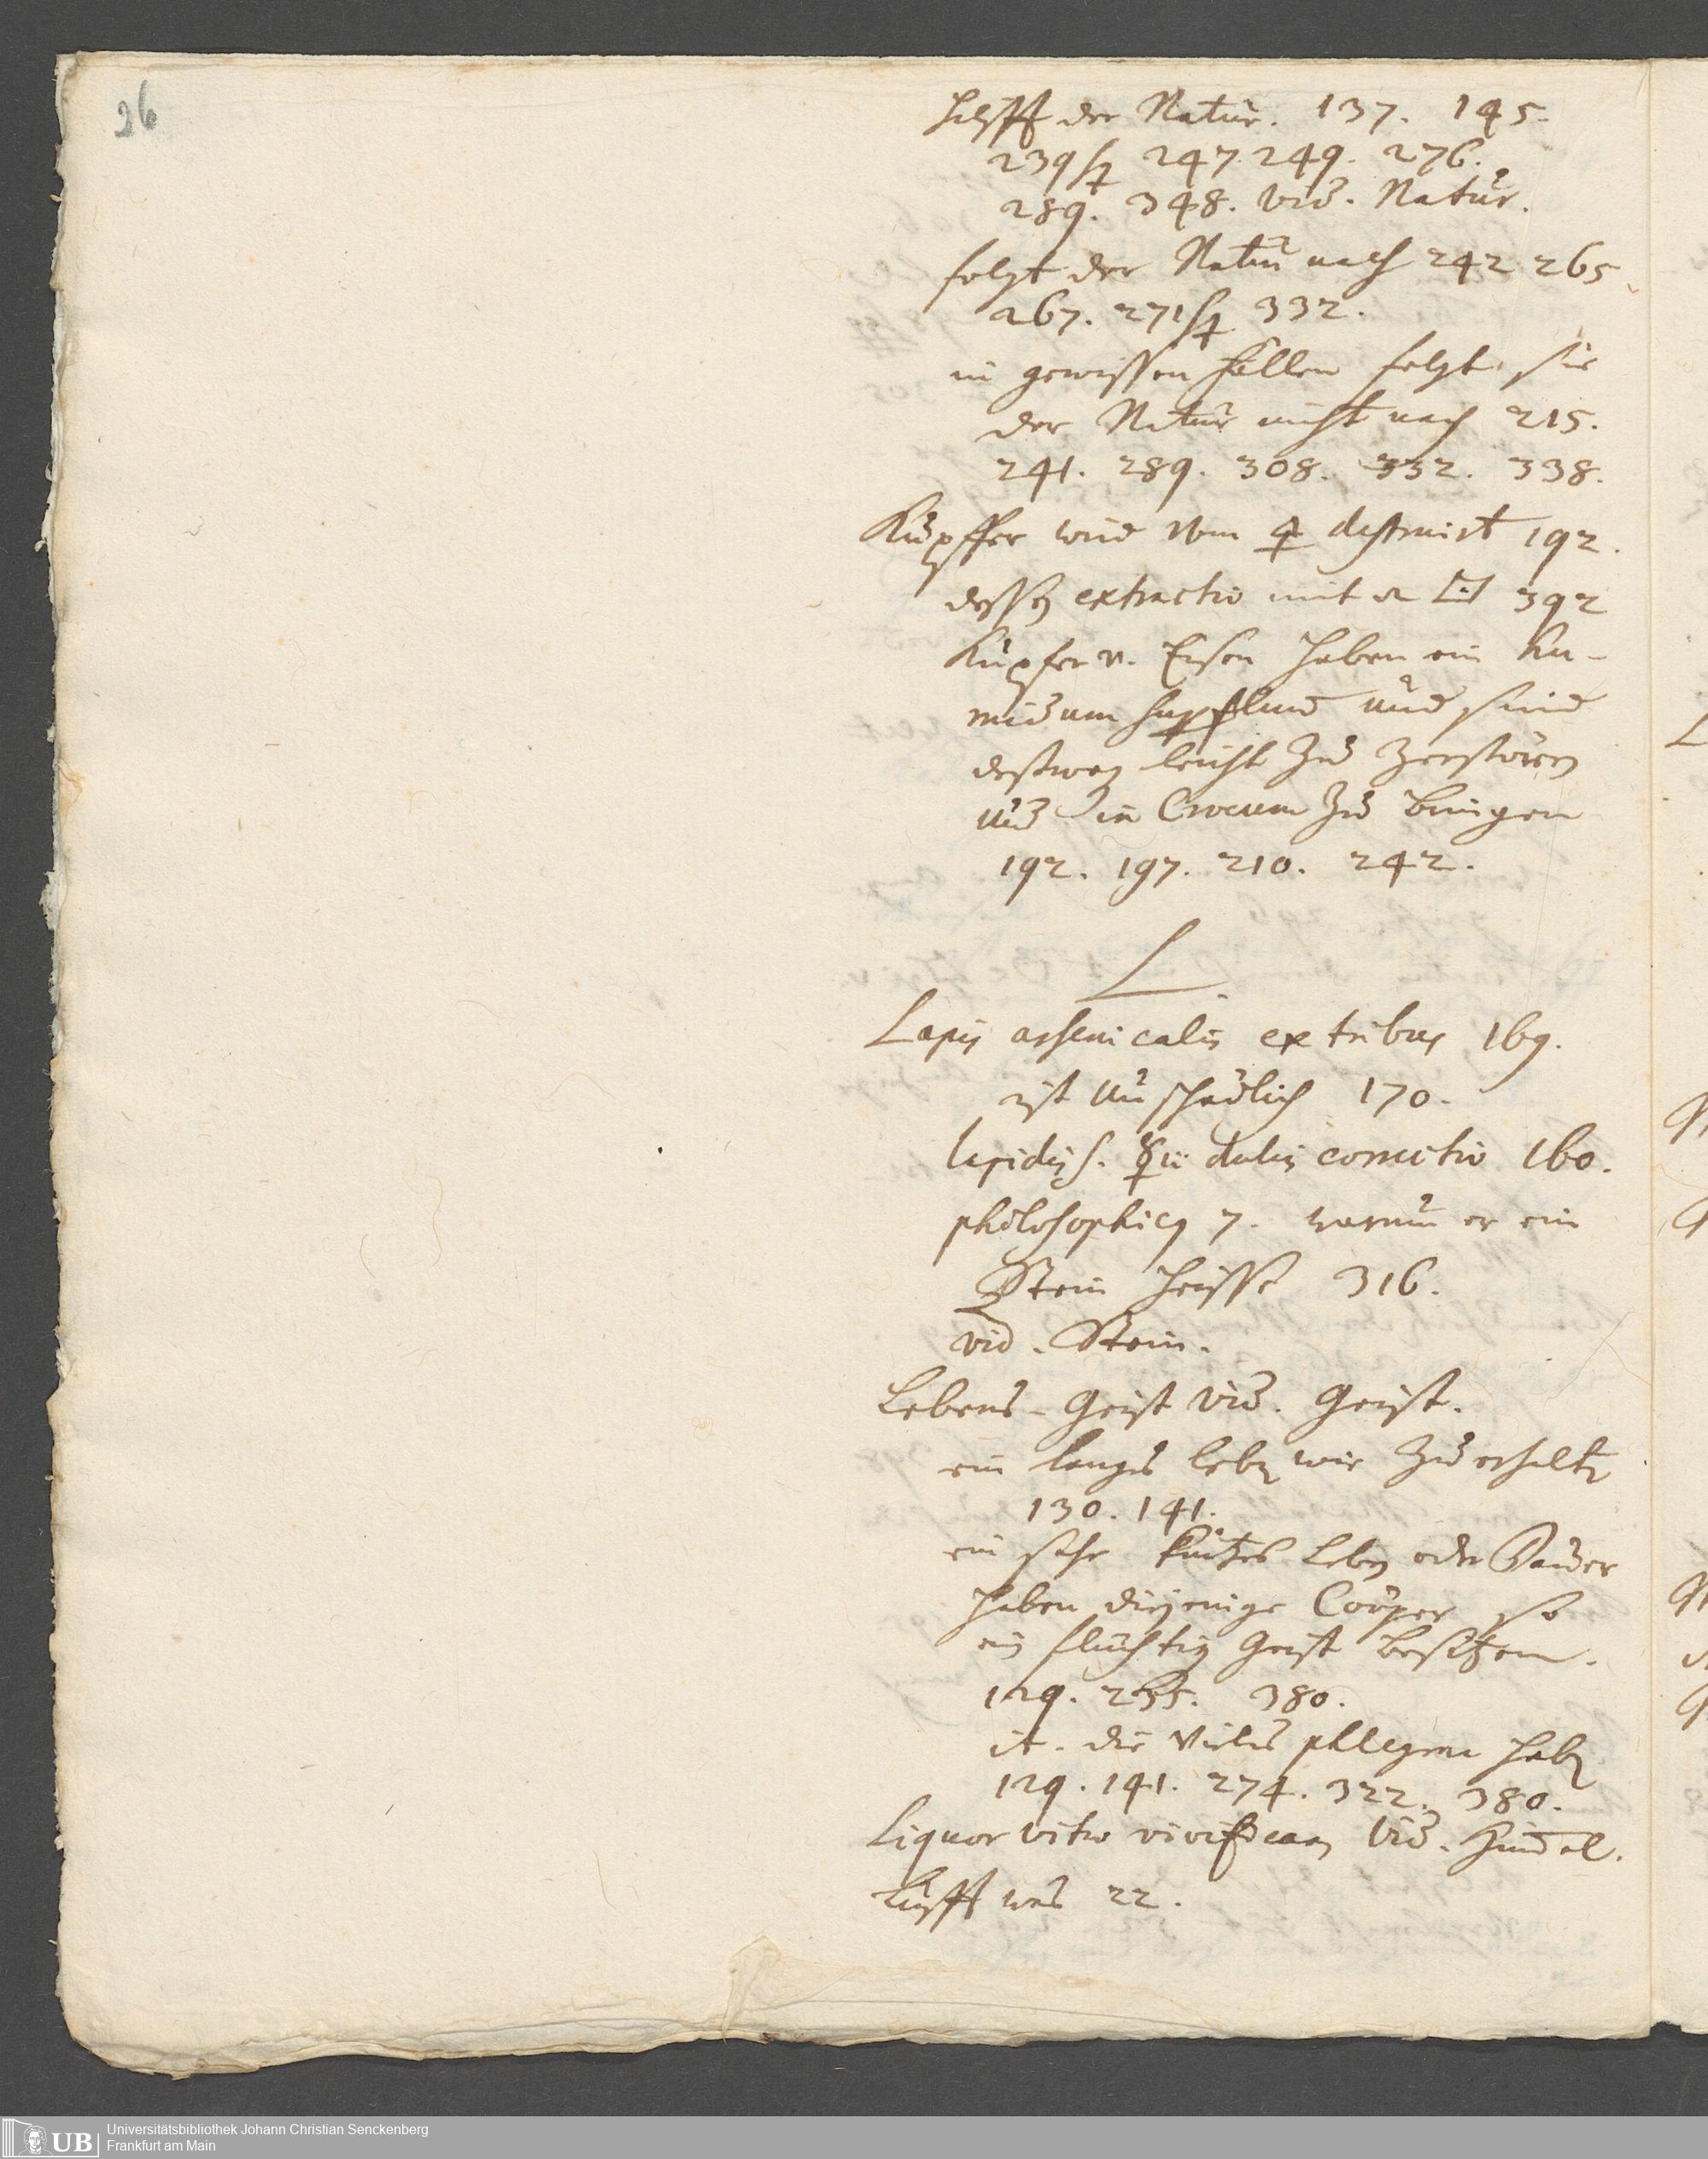 26
hilfft der Natur. 137. 145.
239 sq 247. 249. 276.
289. 348. vid. Natur.
folgt der Natur nach 242 265
267. 271 sq 332.
in gewissen fällen folgt sie
der Natur nicht nach 215.
241. 289. 308. 332. 338.
Kupffer wird vom 🜍 destruirt 192.
dessen extractio mit 392
Kupfer u. Eisen haben ein hu-
midum und sind
destweg leicht zu zerstören
und in Crocum zu bringen
192. 197. 210. 242.
L.
Lapis arsenicalis ex tribus 169.
ist unschädlich 170.
lapidis s. ☿ii dulcis correctio 160.
philosophicus 7. warum er ein
Stein heisse 316.
vid. Stein.
Lebens-Geist vid. Geist.
ein langes leben wie zu erhalten
130. 141.
ein sehr kurtzes Leben oder Dauer
haben diejenige Cörper so
ein flüchtig Geist besitzen.
129. 255. 380.
it. die vieles phlegma haben
129. 141. 274. 322. 380.
Liquor vitro vivificans vid.
Lufft was 22.
UB
Universitätsbibliothek Johann Christian Senckenberg
Frankfurt am Main